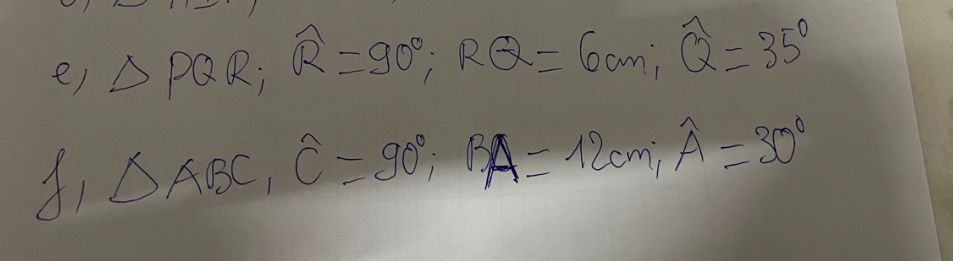 e, △ PQR; R̂ = 90°; RQ = 6cm; Q̂ = 35°
f, △ ABC, Ĉ = 90°; BA = 12cm; Â = 30°